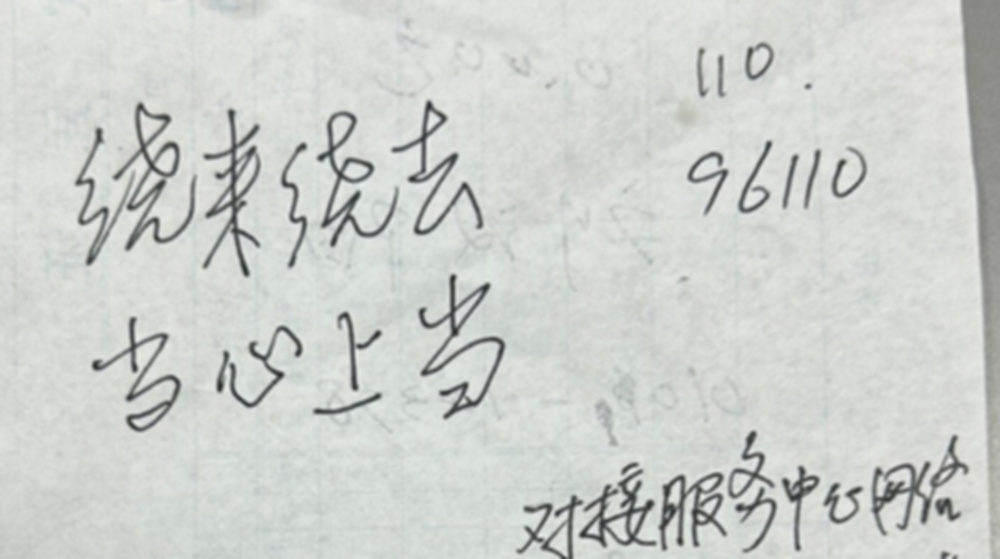 110.
绕来绕去
96110
当心上当
对接服务中心网络